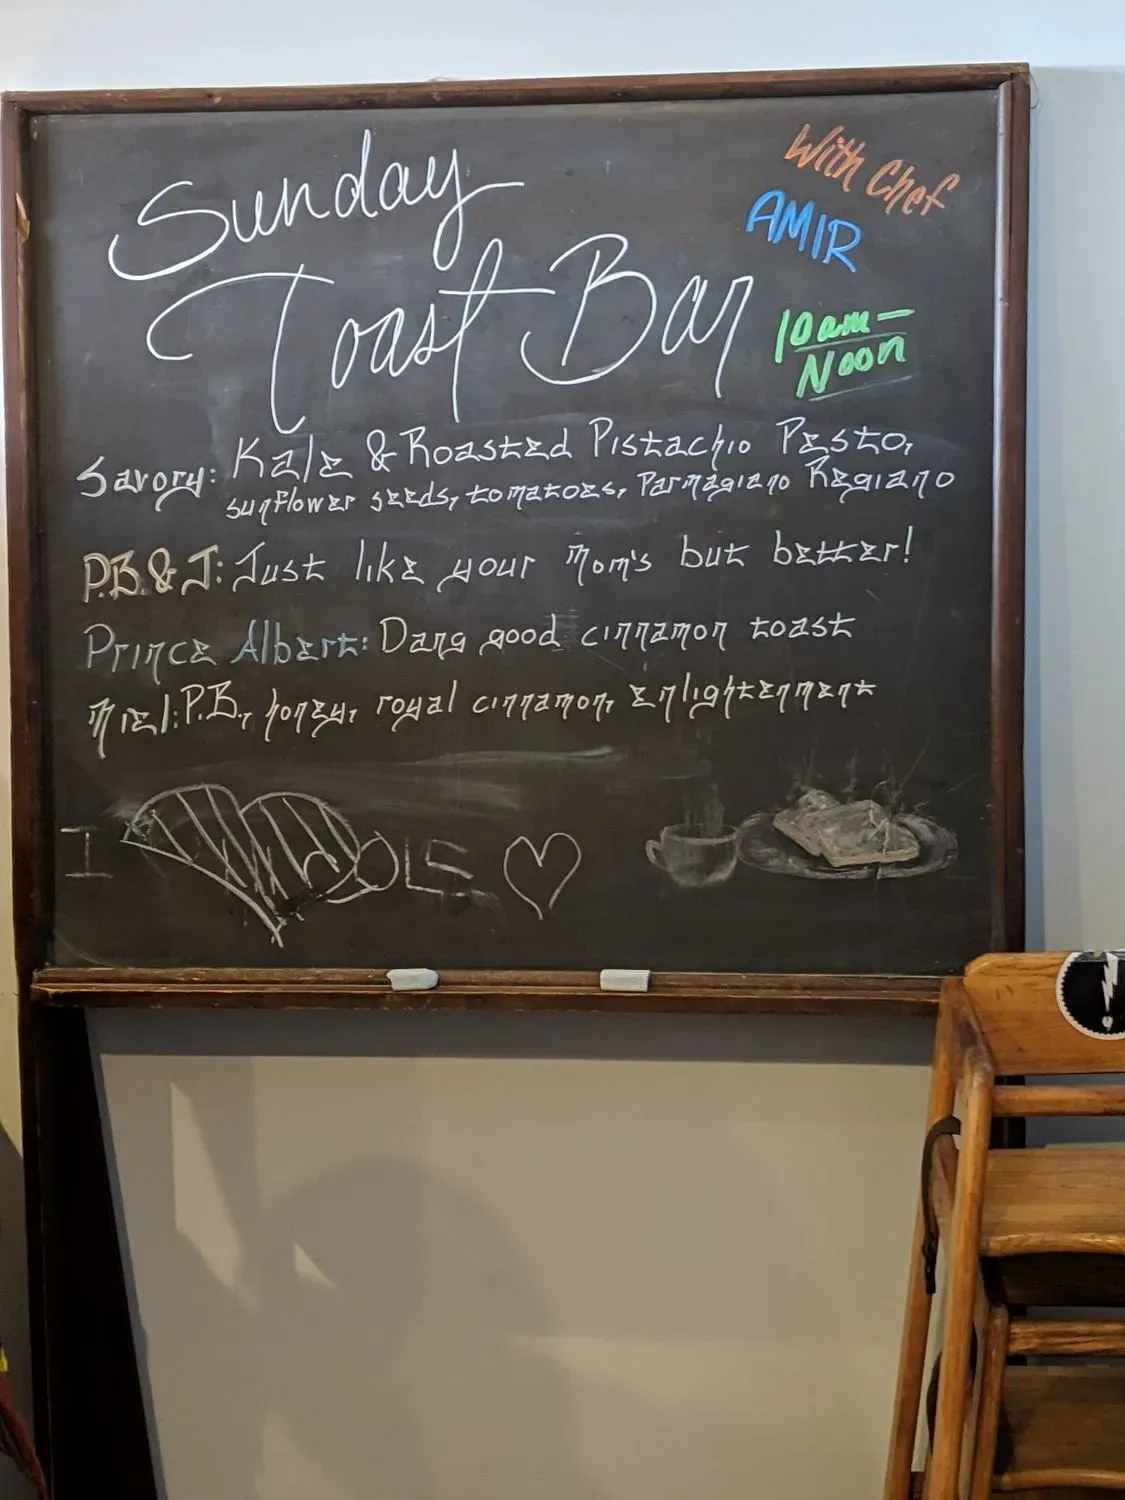 Sunday
Toast Bar
With Chef
AMIR
10am-
Noon
Savory: Kale & Roasted Pistachio Pesto,
sunflower seeds, tomatoes, Parmagiano Regiano
P.B.&J: Just like your Mom's but better!
Prince Albert: Dang good cinnamon toast
Niel: P.B., honey, royal cinnamon, enlightenment
I